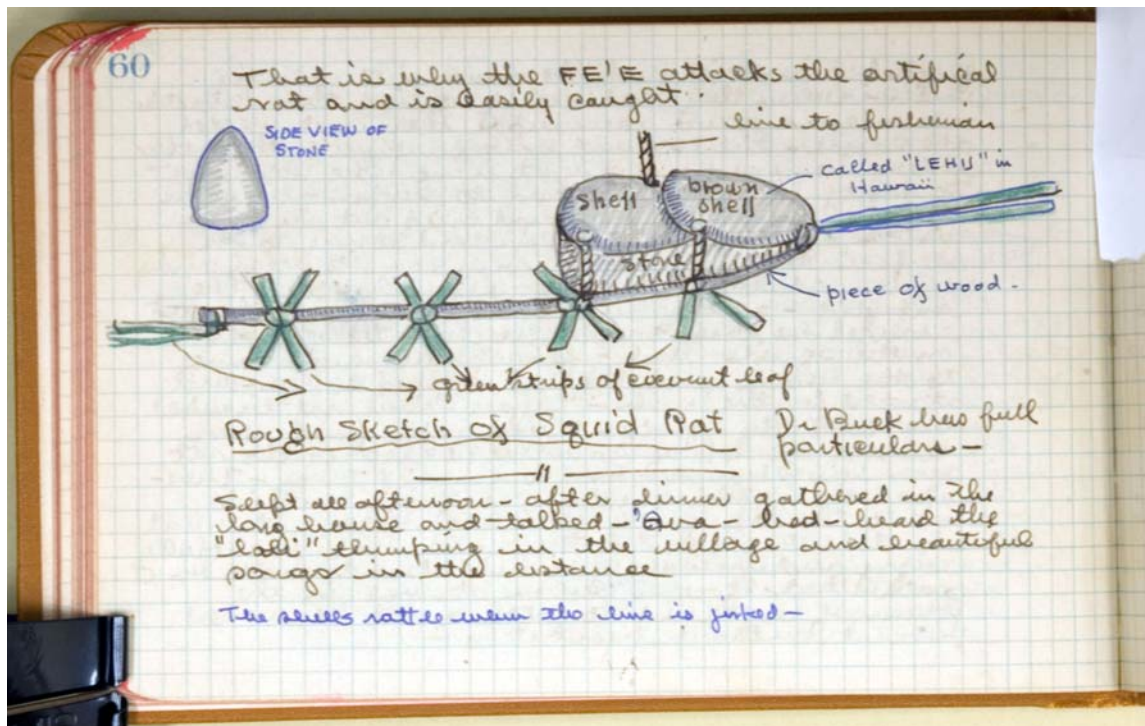 60
That is why the FE'E attacks the artifical
rat and is easily caught.
line to fisherman
SIDE VIEW OF
STONE
called "LEHU" in
Hawaii
shell
brown
shell
stone
piece of wood -
green strips of coconut leaf
Rough Sketch of Squid Rat
Dr Buck has full
particulars -
Slept all afternoon - after dinner gathered in the
long house and talked - 'ava - bed - heard the
"lali" thumping in the village and beautiful
songs in the distance
The shells rattle when the line is jirked -